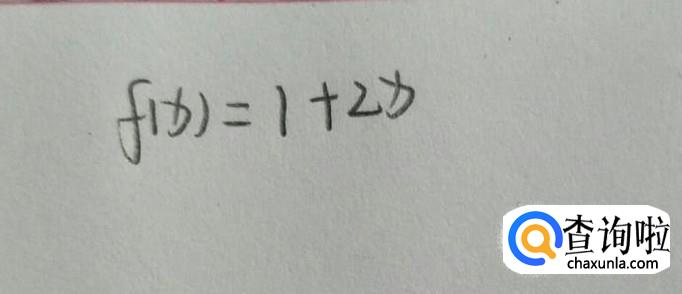 f(x)=1+2x
查询啦
chaxunla.com